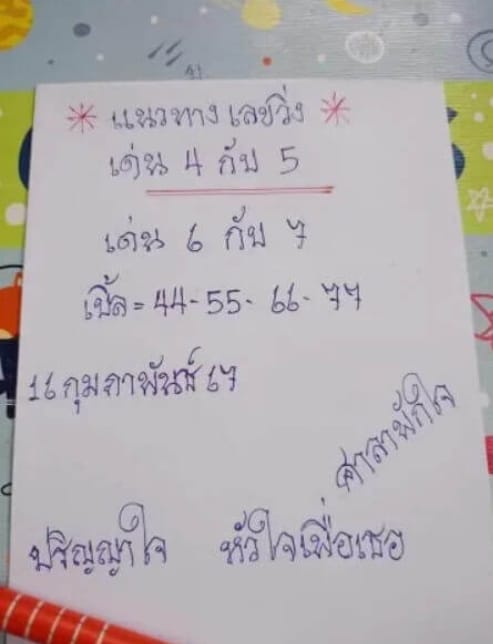 * แนวทาง เลขวิ่ง *
เด่น 4 กับ 5
เด่น 6 กับ 7
เบิ้ล = 44 - 55 - 66 - 77
16 กุมภาพันธ์ 67
ศาลาพักใจ
ปริญญาใจ หัวใจเพื่อเธอ